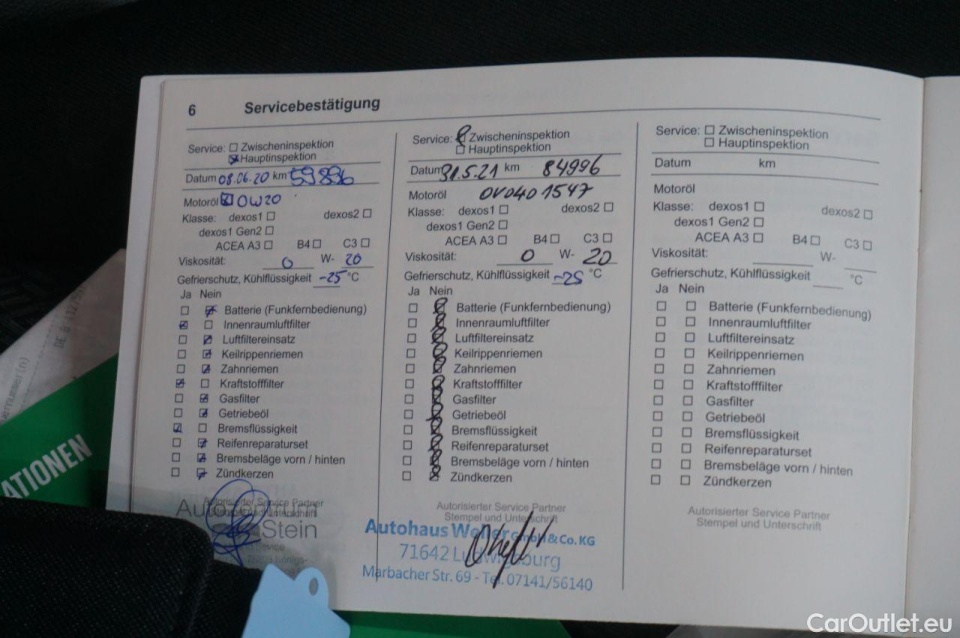 6 Servicebestätigung
Service: Zwischeninspektion
Hauptinspektion
Datum 08.06.20 km 59896
Motoröl 0W20
Klasse: dexos1 dexos2
dexos1 Gen2
ACEA A3 B4 C3
Viskosität: 0 W- 20
Gefrierschutz, Kühlflüssigkeit -25 °C
Ja Nein
Batterie (Funkfernbedienung)
Innenraumluftfilter
Luftfiltereinsatz
Keilrippenriemen
Zahnriemen
Kraftstofffilter
Gasfilter
Getriebeöl
Bremsflüssigkeit
Reifenreparaturset
Bremsbeläge vorn / hinten
Zündkerzen
Autorisierter Service Partner
Stein
Service: Zwischeninspektion
Hauptinspektion
Datum 31.5.21 km 84996
Motoröl OV0401547
Klasse: dexos1 dexos2
dexos1 Gen2
ACEA A3 B4 C3
Viskosität: 0 W- 20
Gefrierschutz, Kühlflüssigkeit -25 °C
Ja Nein
Batterie (Funkfernbedienung)
Innenraumluftfilter
Luftfiltereinsatz
Keilrippenriemen
Zahnriemen
Kraftstofffilter
Gasfilter
Getriebeöl
Bremsflüssigkeit
Reifenreparaturset
Bremsbeläge vorn / hinten
Zündkerzen
Autorisierter Service Partner
Stempel und Unterschrift
Autohaus GmbH & Co. KG
71642 Ludwigsburg
Marbacher Str. 69 - Tel. 07141/56140
Service: Zwischeninspektion
Hauptinspektion
Datum km
Motoröl
Klasse: dexos1 dexos2
dexos1 Gen2
ACEA A3 B4 C3
Viskosität: W-
Gefrierschutz, Kühlflüssigkeit °C
Ja Nein
Batterie (Funkfernbedienung)
Innenraumluftfilter
Luftfiltereinsatz
Keilrippenriemen
Zahnriemen
Kraftstofffilter
Gasfilter
Getriebeöl
Bremsflüssigkeit
Reifenreparaturset
Bremsbeläge vorn / hinten
Zündkerzen
Autorisierter Service Partner
Stempel und Unterschrift
ATIONEN
CarOutlet.eu